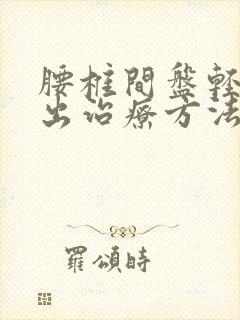 腰椎間盤輕
出治療方法
羅頌時